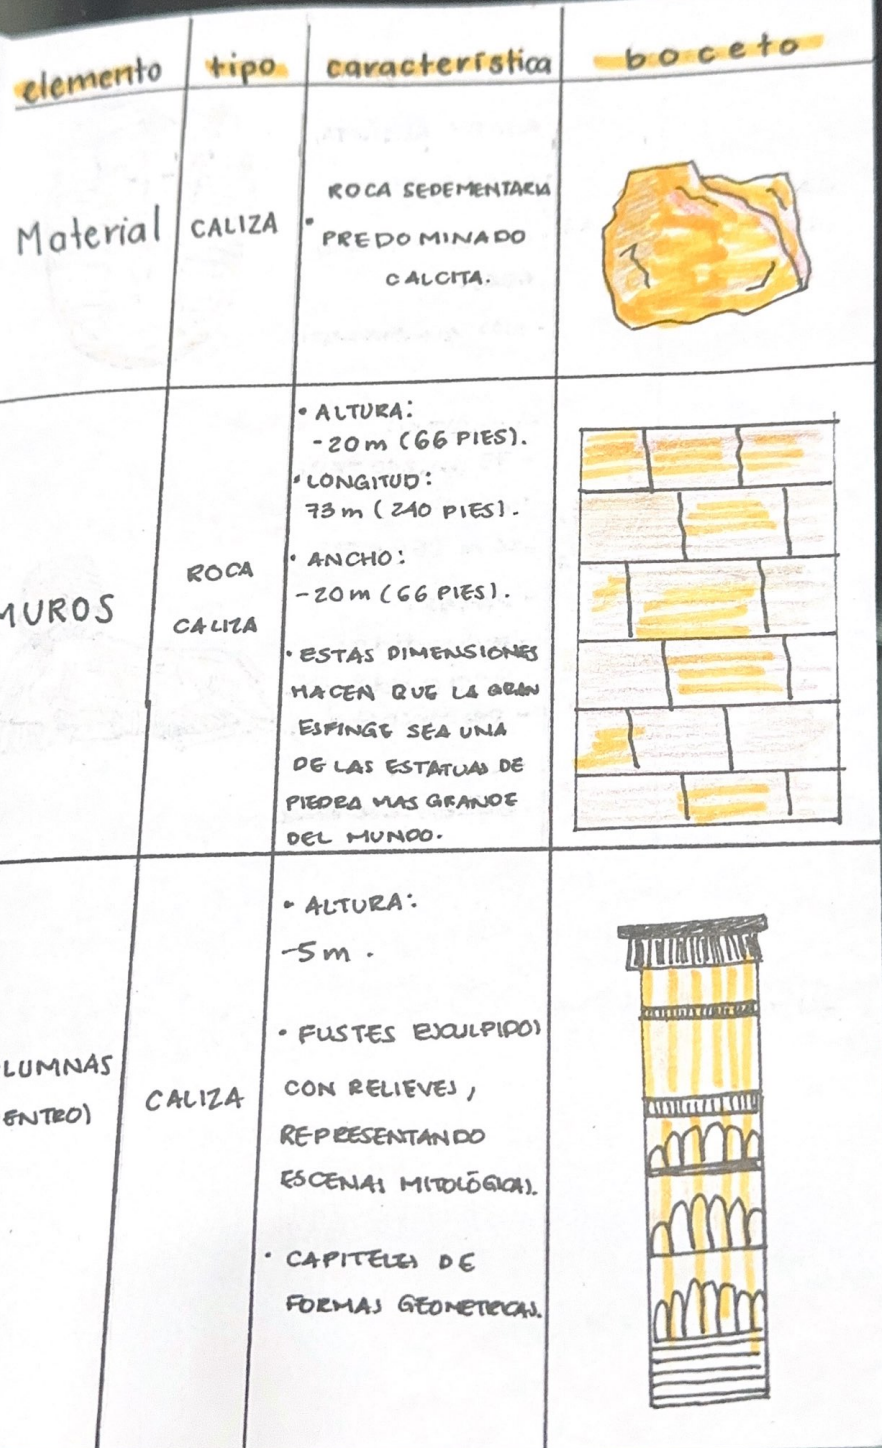 elemento tipo característica boceto
Material CALIZA
ROCA SEDEMENTARIA
• PREDOMINADO
CALCITA.
MUROS
ROCA
CALIZA
• ALTURA:
-20m (66 PIES).
• LONGITUD:
73m (240 PIES).
• ANCHO:
-20m (66 PIES).
• ESTAS DIMENSIONES
HACEN QUE LA GRAN
ESFINGE SEA UNA
DE LAS ESTATUAS DE
PIEDRA MAS GRANDE
DEL MUNDO.
LUMNAS
ENTRO)
CALIZA
• ALTURA:
-5m.
• FUSTES ESCULPIDOS
CON RELIEVES,
REPRESENTANDO
ESCENAS MITOLÓGICAS.
• CAPITELES DE
FORMAS GEOMETRICAS.